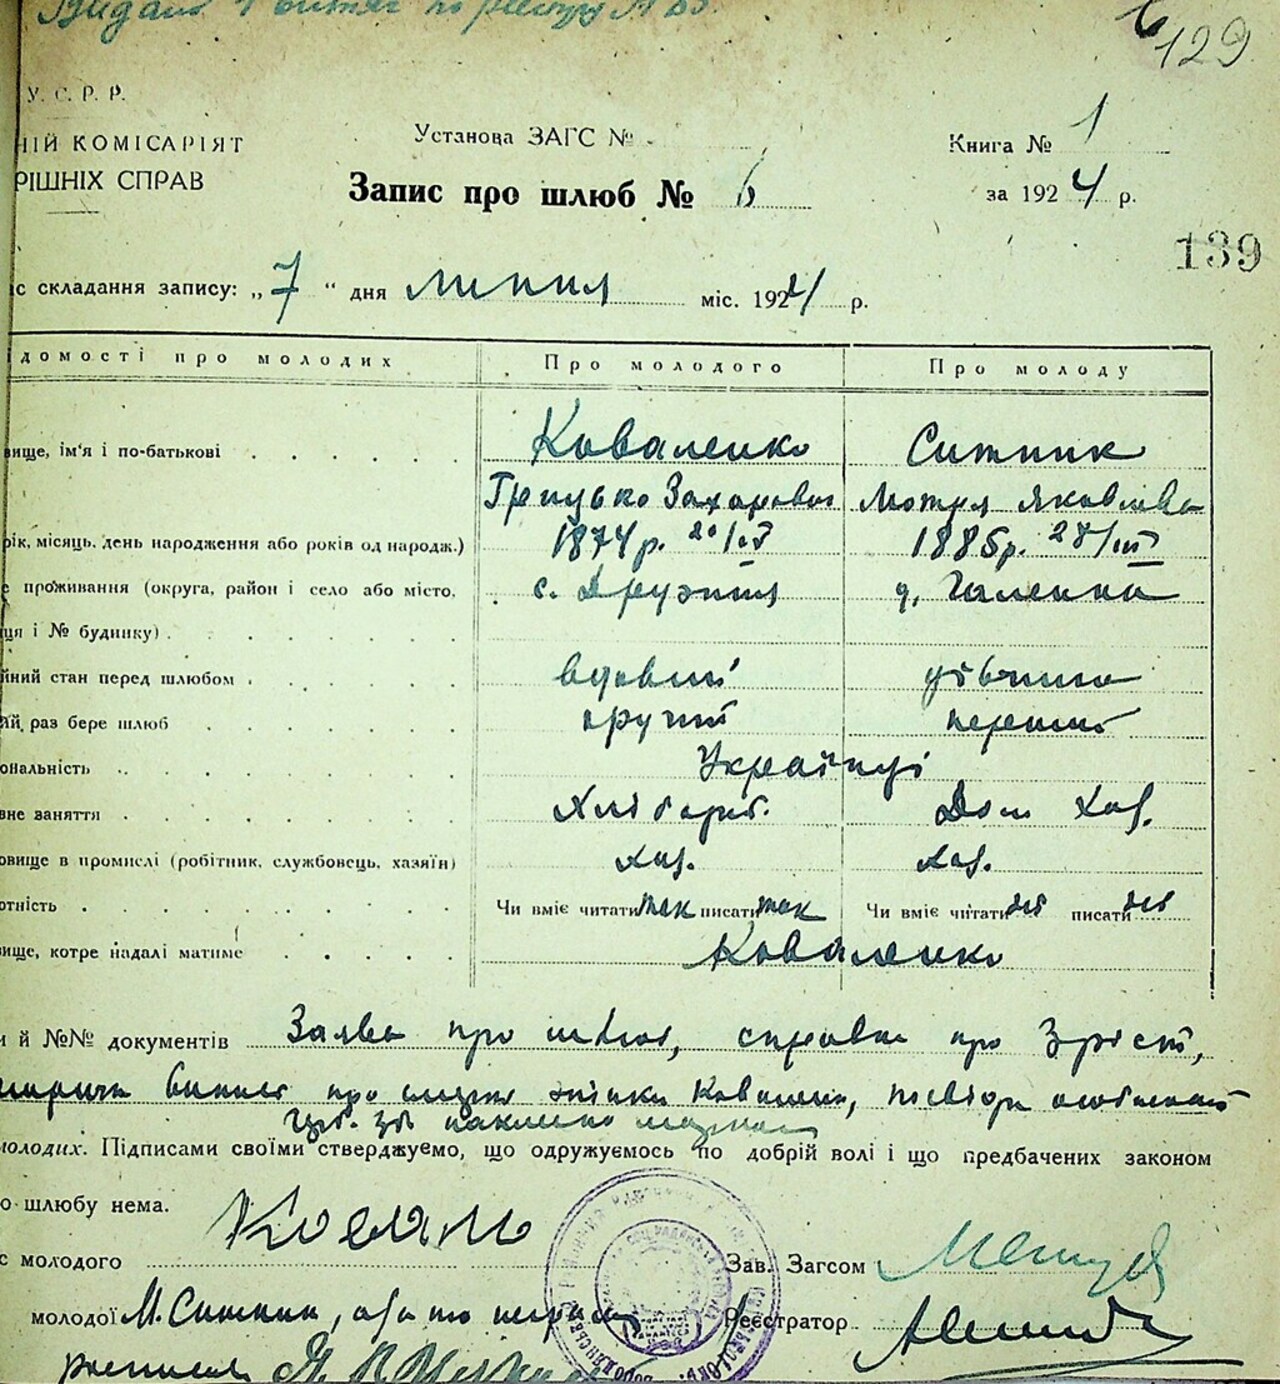 Видано 1 витяг по реєстру № 83.
129
У. С. Р. Р.
НІЙ КОМІСАРІЯТ
РІШНІХ СПРАВ
Установа ЗАГС №
Запис про шлюб № 6
Книга № 1
за 1924 р.
139
с складання запису: „7“ дня липня міс. 1924 р.
ідомості про молодих
Про молодого
Про молоду
вище, ім'я і по-батькові
Коваленко
Ситник
Грицько Захарович
Мотря Яковлєва
рік, місяць, день народження або років од народж.)
1874 р. 20/IX
1885 р. 27/III
е проживання (округа, район і село або місто,
с. Дружня
д. Галенки
ця і № будинку)
йний стан перед шлюбом
вдовий
дівчина
ий раз бере шлюб
другий
перший
ональність
Українці
вне заняття
Хлібороб.
Дом Хаз.
овище в промислі (робітник, службовець, хазяїн)
хаз.
хаз.
отність
Чи вміє читати так писати так
Чи вміє читати ні писати ні
вище, котре надалі матиме
Коваленко
и й №№ документів Заява про шлюб, справка про Зріст,
витяг про смерть жінки Коваленка,
молодих. Підписами своїми стверджуємо, що одружуємось по добрій волі і що предбачених законом
о шлюбу нема.
с молодого
Зав. Загсом
молодої М. Ситник, а за неї неграм
Реєстратор